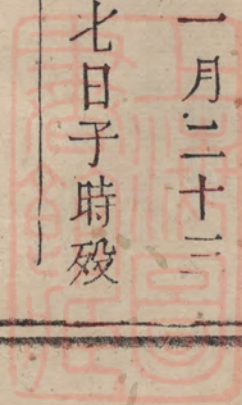 一月二十三
七日子時歿